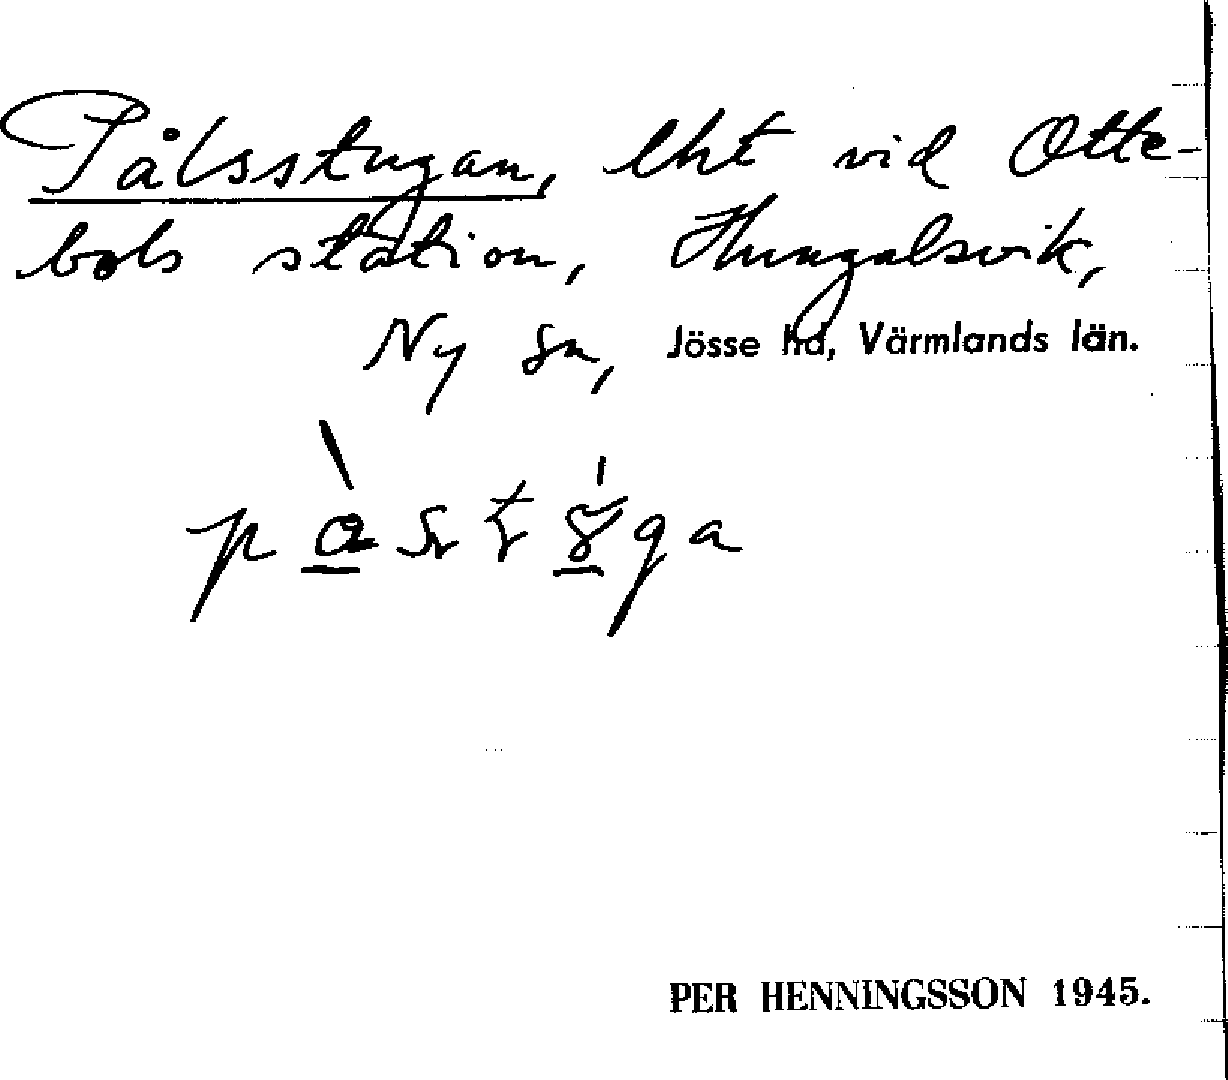 Pålsstugan, lht vid Otte-
bols station, Hungalsvik,
Ny sn, Jösse hd, Värmlands län.
PER HENNINGSSON 1945.